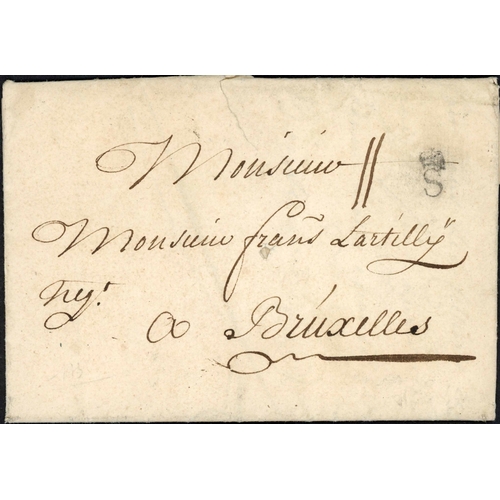 Monsieur
S
Monsieur frans Lartillÿ
neg.t
a Bruxelles